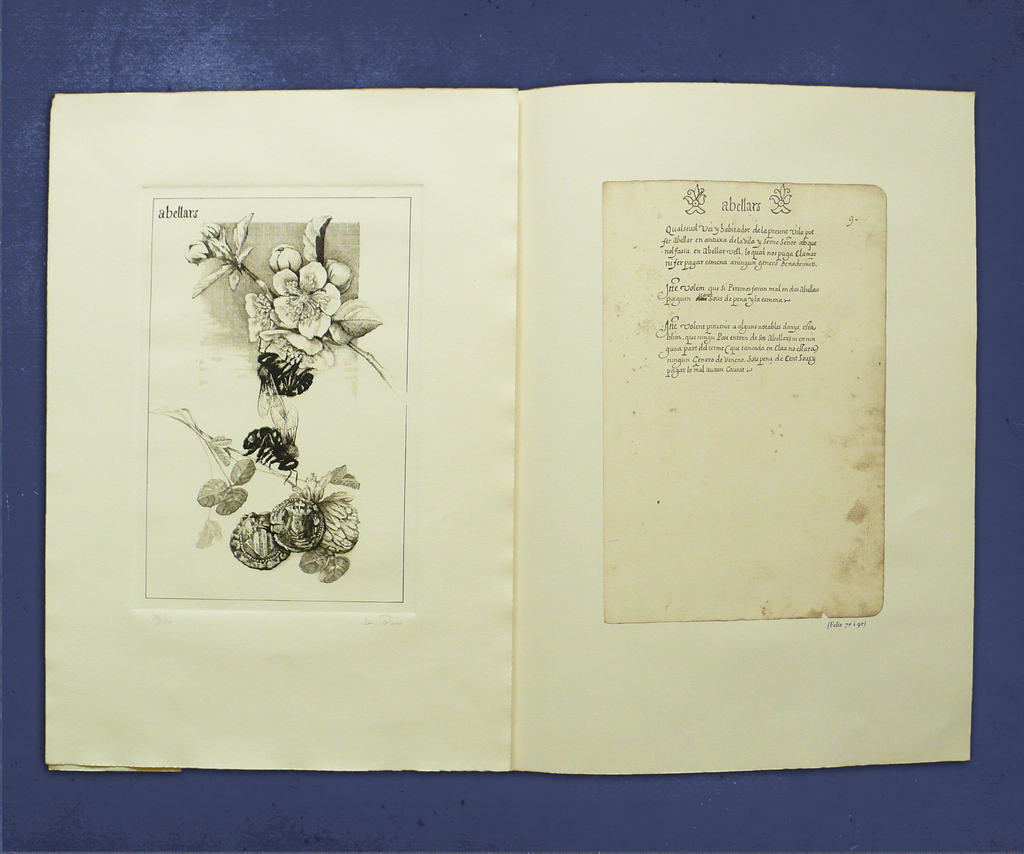 abellars
abellars
9-
Qualsevol Vei y habitador de la present Vila pot
fer Abellar en antuxa de la Vila y Terme Señor ab que
nol fassa en Abellar vell, lo qual nos puga Clamar
ni fer pagar esmena a ningun género
Ite Volem que si Persones faran mal en dits Abellars
paguen Sous de pena y la esmena
Ite Volent prevenir a alguns notables danys, esta
blim, que ningú Pose entorn de sos Abellars ni en nin
guna part del terme (que tancada en Clau no estara)
ningún Genero de Veneno. Sots pena de Cent Sous y
pagar lo mal auran Causat
(Folis 7r i 9r)